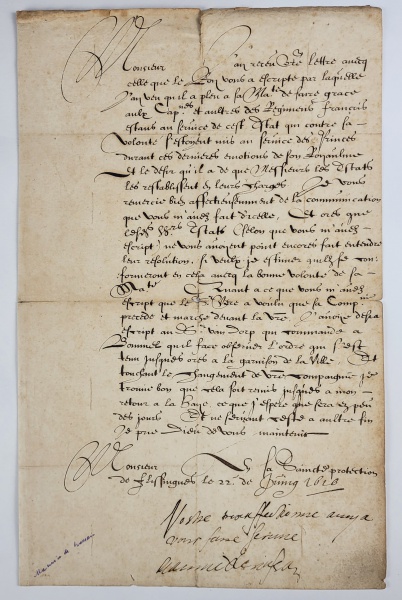 Monsieur J'ay receu vre lettre auecq
celle que le Roy vous a escripte par laquelle
J'ay veu qu'il a pleu a sa Mate de faire grace
aulx Capnes et autres des Regimens francois
estans au seruice de cest Estat qui contre sa
volonte s'estoyent mis au seruice des Princes
durant ces dernieres emotions de son Royaulme
Et le desir qu'il a de que Messieurs les Estats
les restablissent en leurs charges Je vous
remercie bien affectueusement de la communication
que vous m'auez fait d'icelle Et ores que
Estats (selon que vous m'auez
escript) ne vous auoyent point encores fait entendre
leur resolution. si veulx je estimer qu'ilz se con-
formeront en cela auecq la bonne volonte de sa
Mate Quant a ce que vous m'auez
escript que le Sr a voulu que sa Compnie
precede et marche deuant la vre J'auoye desia
escript au Sr van dorp qui commande a
Bommel qu'il face obseruer l'ordre qui s'est
tenu jusques ores a la garnison de la ville Et
touchant le changement de vre Compaignie je
trouue bon que cela soit remis jusques a mon
retour a la Haye ce que j'espere que sera en peu
des jours Et ne seruant ceste a aultre fin
Je prie Dieu de vous maintenir
Monsieur En sa Saincte protection
de Flissingues le 22. de
Vostre amy a
vous faire seruice
Maurice de Nassau